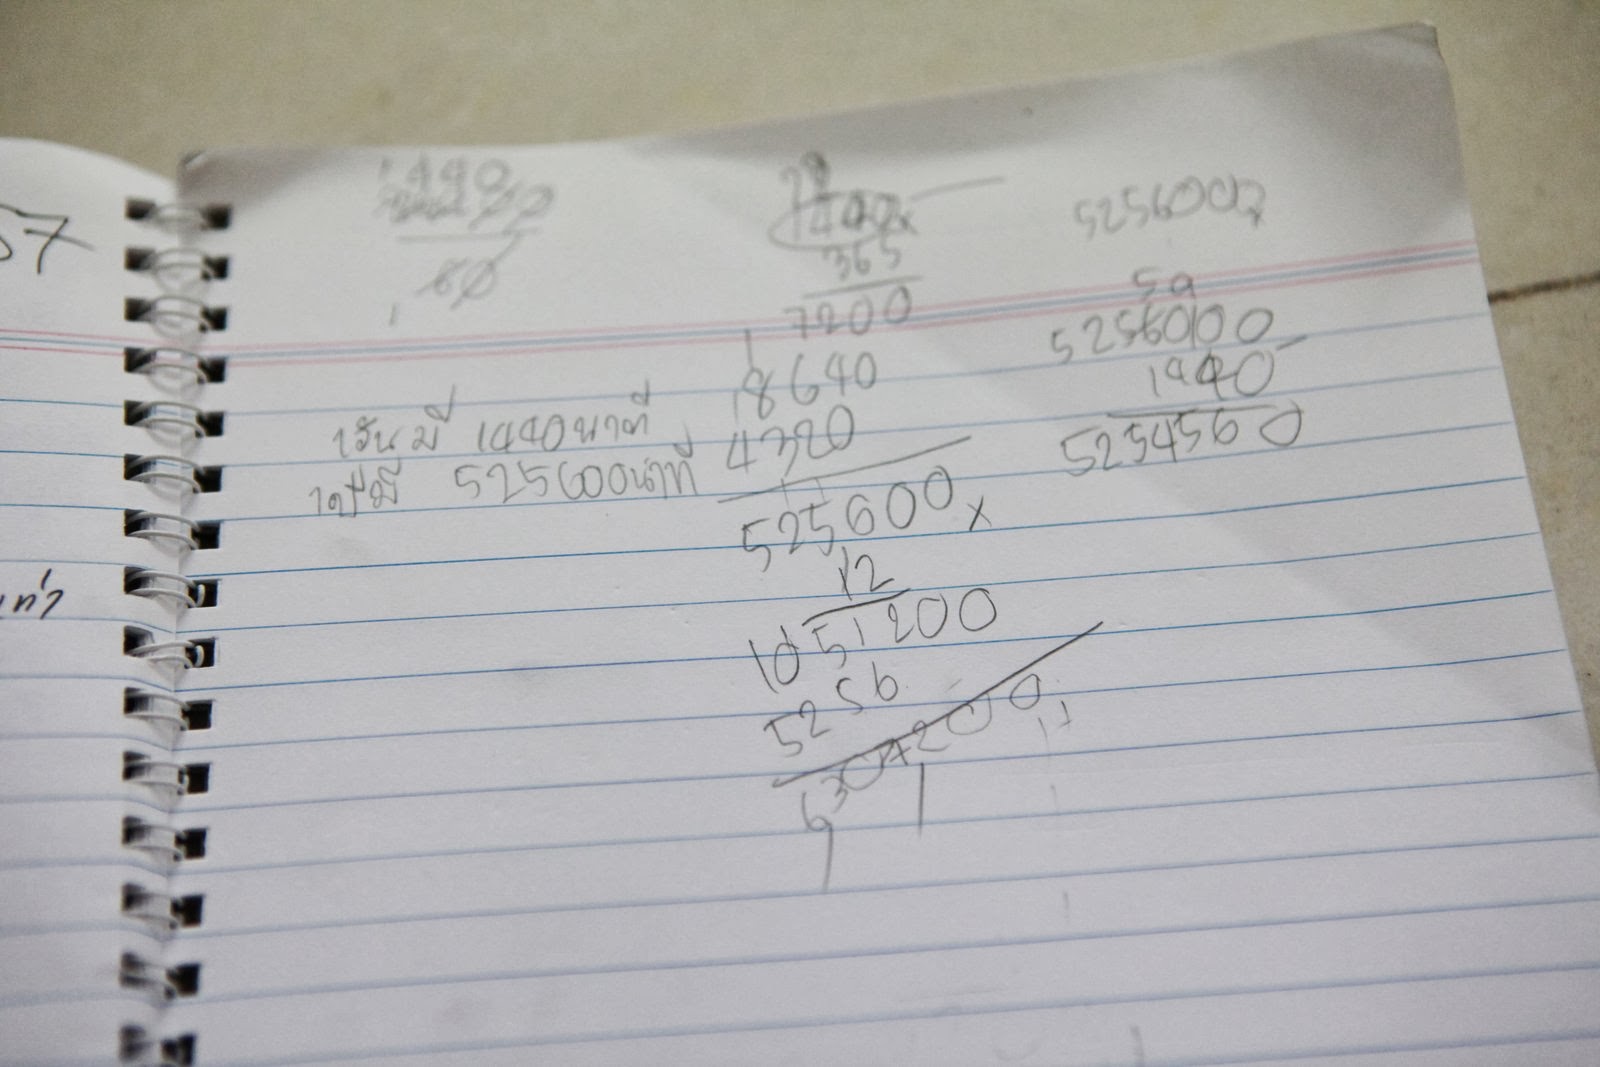 57
เท่า
1440
60
1440x
365
7200
8640
4320
525600x
12
1051200
5256
6307200
1วัน มี 1440นาที
1ปีมี 525600นาที
5256000
5256000-
1440
5254560